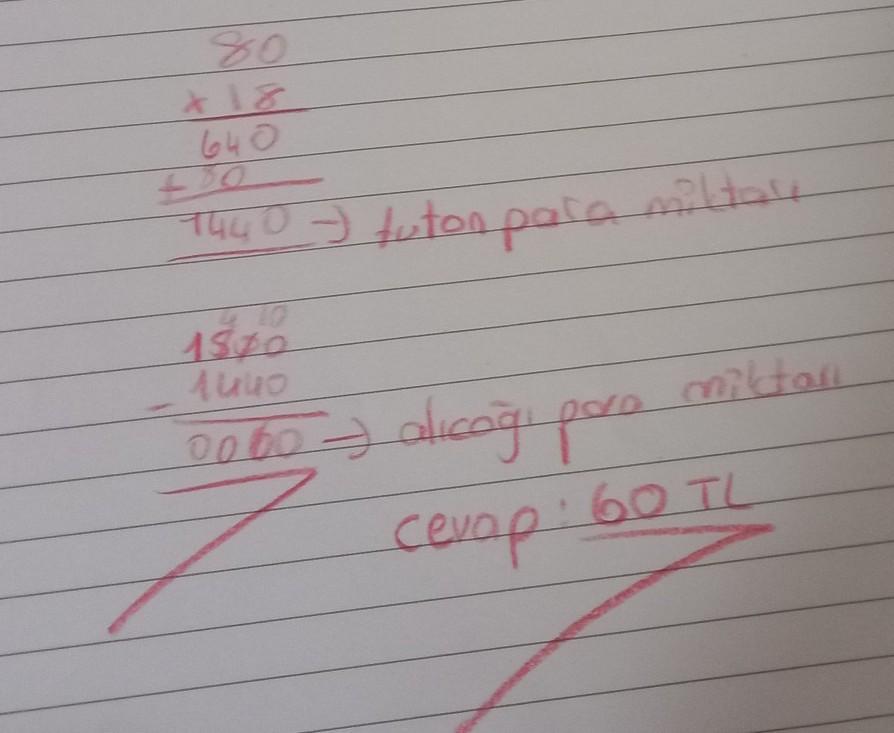 80
x 18
640
+ 80
1440 → tutan para miktarı
4 10
1500
- 1440
0060 → alıcağı para miktarı
cevap: 60 TL